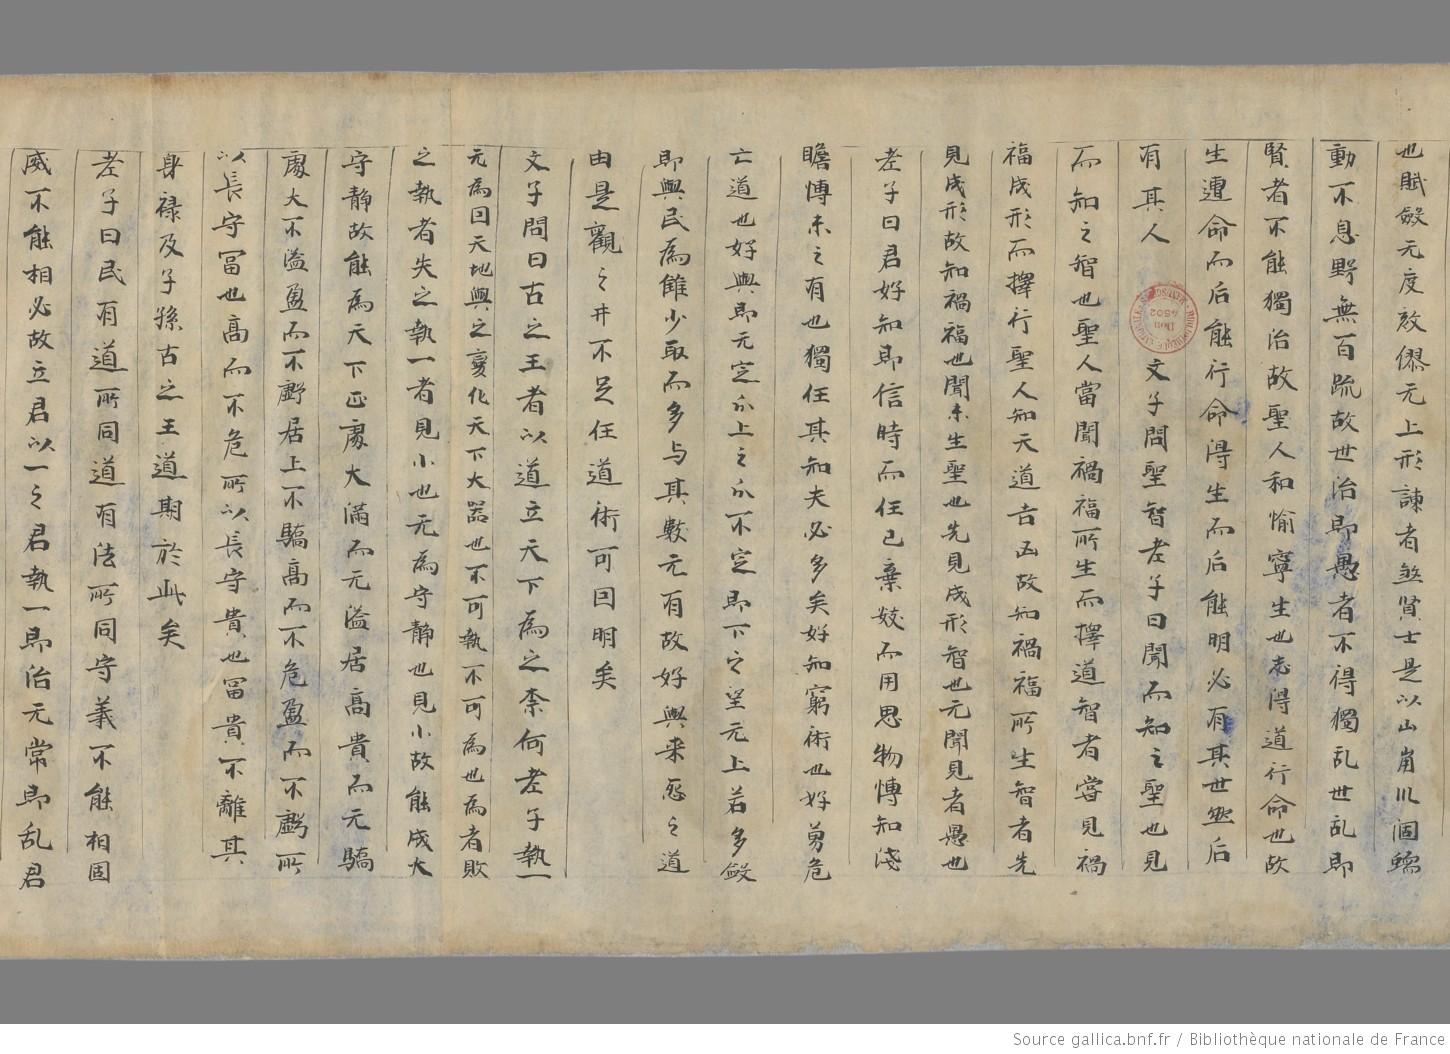 也賦斂无度煞僇无止形諫者煞賢士是以山崩川涸蠕
動不息野無百疏故世治即愚者不得獨乱世乱即
賢者不能獨治故聖人和愉寧生也志得道行命也故
生遭命而后能行命得生而后能明必有其世然后
有其人 文子問聖智老子曰聞而知之聖也見
而知之智也聖人當聞禍福所生而擇道智者嘗見禍
福成形而擇行聖人知天道吉凶故知禍福所生智者先
見成形故知禍福也聞未生聖也先見成形智也无聞見者愚也
老子曰君好知即信時而任已棄數而用思物博知淺
贍博未之有也獨任其知失必多矣好知窮術也好勇危
亡道也好與即无定分上之分不定即下之望无上若多斂
即與民為讎少取而多与其數无有故好與来怨之道
由是觀之財不足任道術可因明矣
文子問曰古之王者以道立天下為之柰何老子執一
无為因天地與之變化天下大器也不可執不可為也為者敗
之執者失之執一者見小也无為守靜也見小故能成大
守靜故能為天下正處大滿而无溢居高貴而无驕
處大不溢盈而不虧居上不驕高而不危盈而不虧所
以長守冨也高而不危所以長守貴也冨貴不離其
身禄及子孫古之王道期於此矣
老子曰民有道所同道有法所同守義不能相固
威不能相必故立君以一之君執一即治无常即乱君
BIBLIOTHEQUE
Don
4502
Source gallica.bnf.fr / Bibliothèque nationale de France